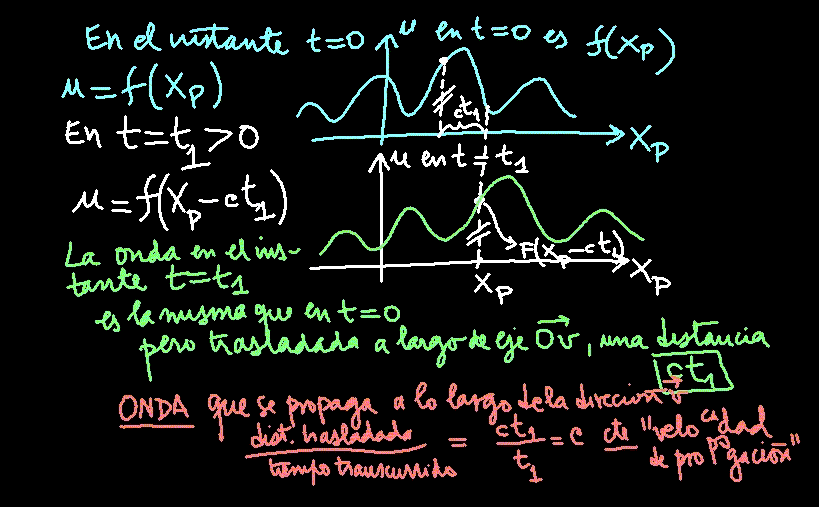 En el instante t=0
u en t=0 es f(x_p)
u = f(x_p)
ct₁
x_p
En t=t₁>0
u en t=t₁
u = f(x_p-ct₁)
F(x_p-ct₁)
x_p
x_p
La onda en el ins-
tante t=t₁
es la misma que en t=0
pero trasladada a largo de eje Ov⃗, una distancia
ct₁
ONDA que se propaga a lo largo de la dirección v⃗
dist. trasladada / tiempo transcurrido = ct₁ / t₁ = c cte "velocidad
de propagación"